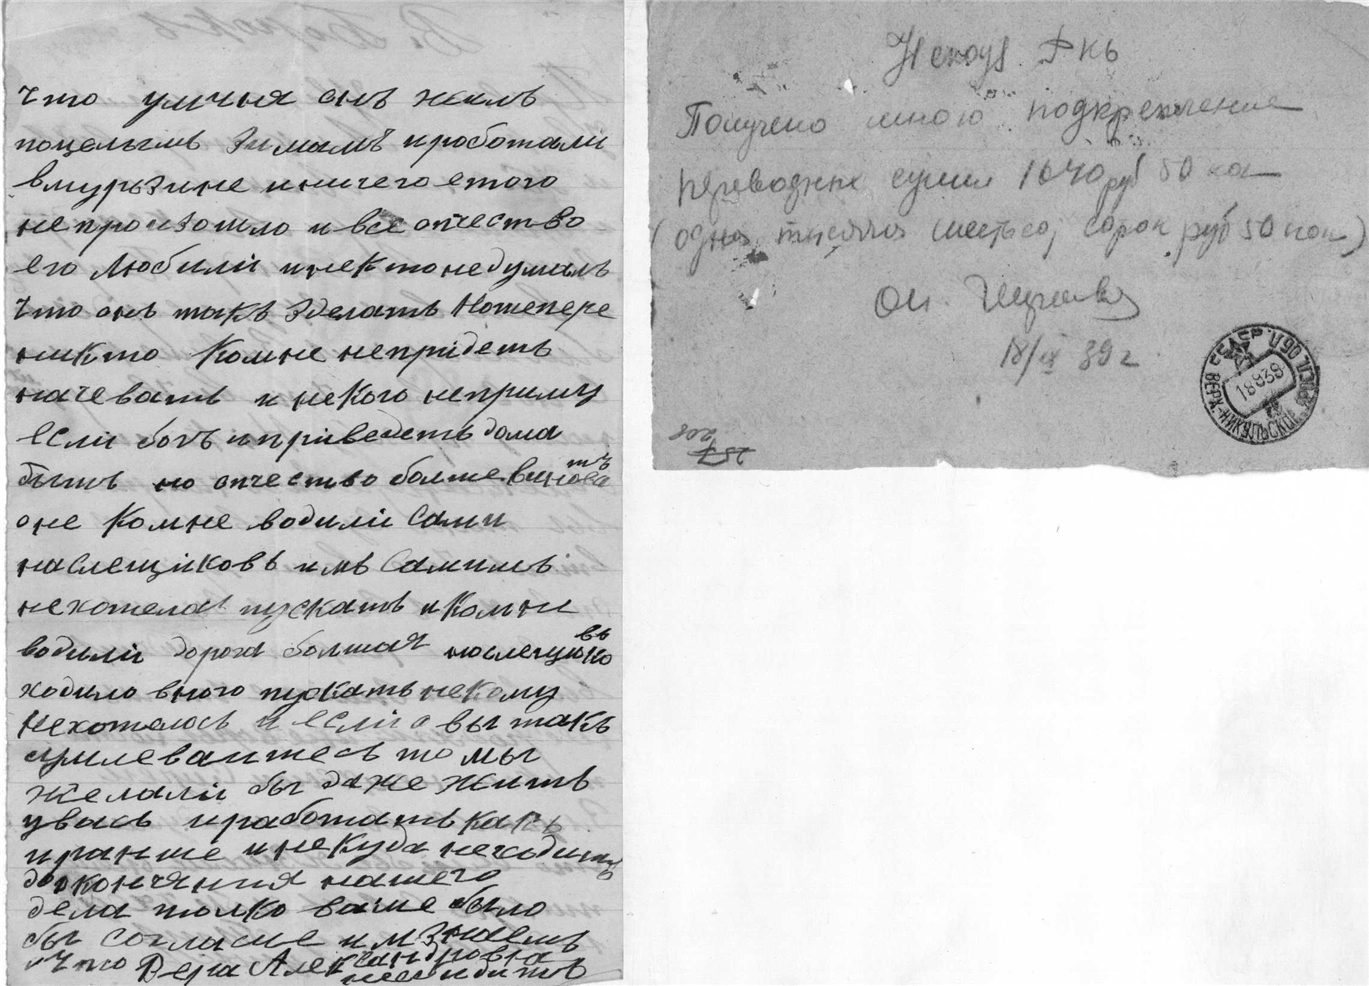 что умчня онъ жилъ
поцелымъ зимамъ и роботали
вмурьзине иничего етого
непроизошло и все отчество
его любили инектонедумалъ
что онъ такъ зделать Нотепере
никто комне непрiдеть
начевать и некого неприму
еслi богъ и прiведеть дома
быть но отчество болше виновато
оне комне водилi сами
наслещiковъ имъ самимъ
нехотелос пускать и комни
водилi дорога болшая
ходило вного пускать некому
нехотелось и еслi вы такъ
сумлеваитесь то мы
желалi бы даже жить
увасъ иработать какъ
иранше инекуда неходить
доокончяния нашего
дела толко ваше было
бы согласие имзнаемъ
что Вера Александровна
Расход РКЬ
Получено мною подкрепление
переводных сумм 1640 руб 50 коп
(одна тысяча шестьсо, сорок руб 50 коп)
18/IX 39 г
ВЕРХ.-НИКУЛЬСКОЕ ЯРОСЛ. ОБЛ.
18 9 39